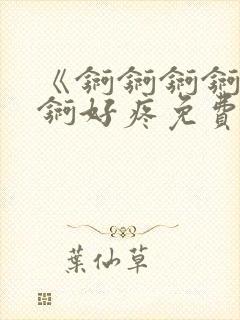 《锕锕锕锕
锕好疼免費
葉仙草